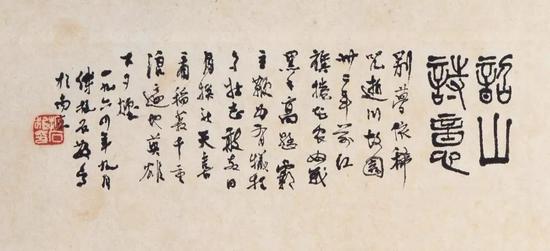 韶山
詩意
別夢依稀
咒逝川故園
卅二年前紅
旗捲起農奴戟
黑手高懸霸
主鞭為有犧牲
多壯志敢教日
月換新天喜
看稻菽千重
浪遍地英雄
下夕煙
一九六四年九月
傅抱石
於南京